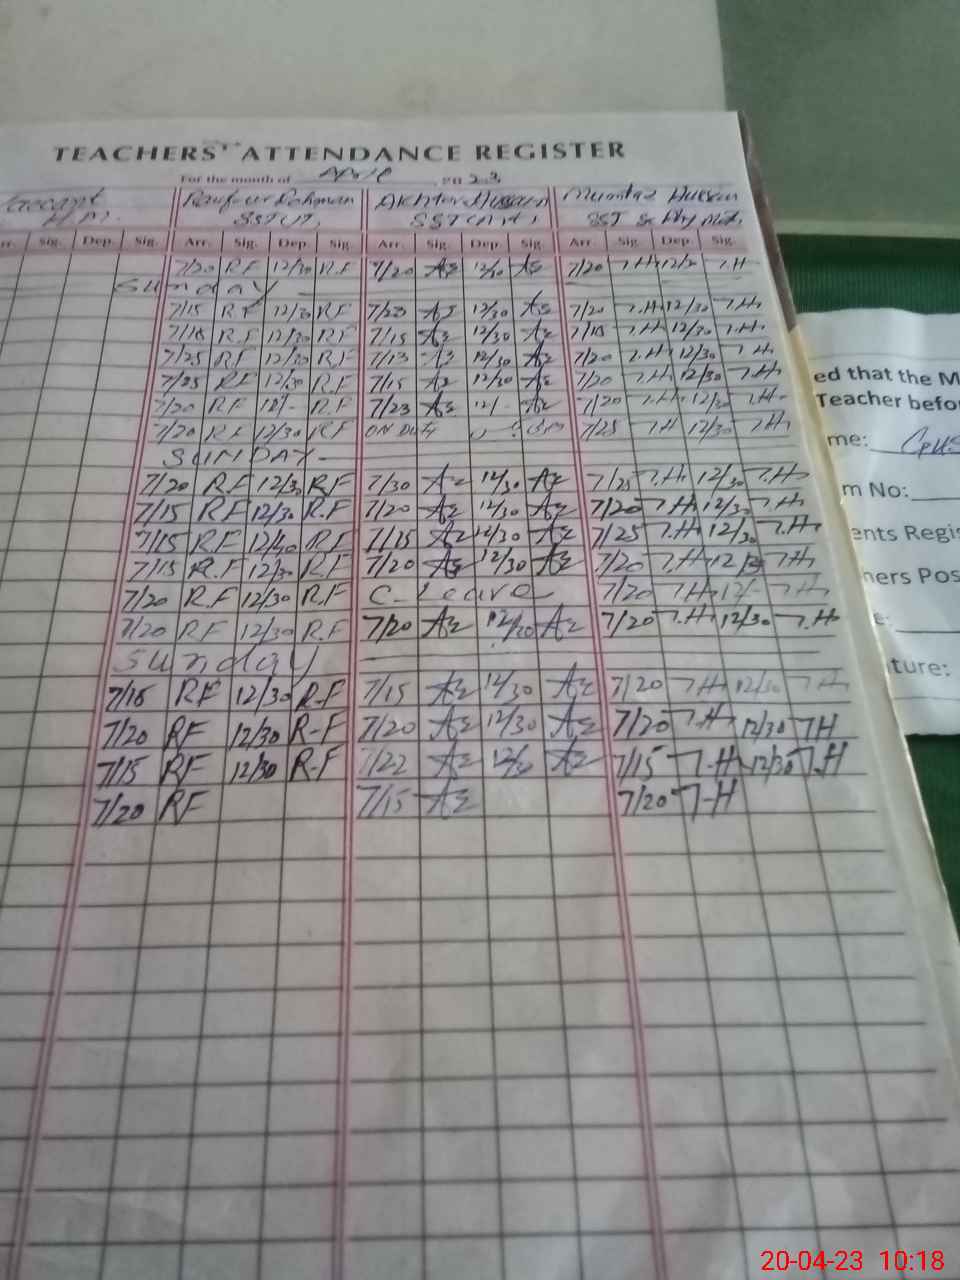 TEACHERS' ATTENDANCE REGISTER
For the month of April, 2023
Vacant Raufur Rehman Akhtar Hussain Mumtaz Hussain
H.M. SST
Arr. Sig. Dep. Sig. Arr. Sig. Dep. Sig. Arr. Sig. Dep. Sig. Arr. Sig. Dep. Sig.
7/20 R.F 12/30 R.F 7/20 Az 12/30 Az 7/20 T.H T.H
Sunday
7/15 R.F 12/30 R.F 7/23 Az 12/30 Az 7/20 T.H 12/30 T.H
7/18 R.F 12/30 R.F 7/15 Az 12/30 Az 7/18 T.H 12/30 T.H
7/25 R.F 12/30 R.F 7/13 Az 12/30 Az 7/20 T.H 12/30 T.H
7/25 R.F 12/30 R.F 7/15 Az 12/30 Az 7/20 T.H 12/30 T.H
7/20 R.F 12/- R.F 7/23 Az 12/- Az 7/20 T.H 12/30 T.H
7/20 R.F 12/30 R.F ON DUTY 7/25 T.H 12/30 T.H
SUNDAY-
7/20 R.F 12/30 R.F 7/30 Az 12/30 Az 7/25 T.H 12/30 T.H
7/15 R.F 12/30 R.F 7/20 Az 12/30 Az 7/20 T.H 12/30 T.H
7/15 R.F R.F Az 12/30 Az 7/25 T.H 12/30 T.H
7/15 R.F 12/30 R.F 7/20 Az 12/30 Az 7/20 T.H T.H
7/20 R.F 12/30 R.F C. Leave 7/20 T.H 12/- T.H
7/20 R.F 12/30 R.F 7/20 Az Az 7/20 T.H 12/30 T.H
Sunday
7/18 RF 12/30 R-F 7/15 Az 12/30 Az 7/20 T.H 12/30 T.H
7/20 RF 12/30 R-F 7/20 Az 12/30 Az 7/20 T.H 12/30 T.H
7/15 RF 12/30 R-F 7/22 Az 12/30 Az 7/15 T-H 12/30 T.H
7/20 RF 7/15 Az 7/20 T-H
ed that the M
Teacher befor
me:
m No:
ents Regis
hers Pos
e:
ture:
20-04-23 10:18